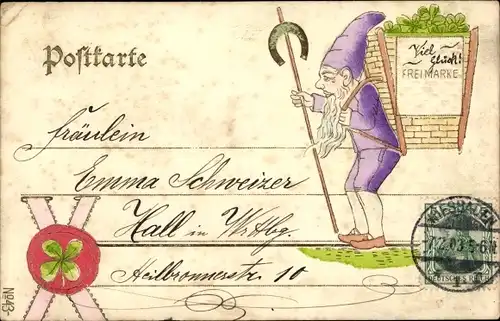 Postkarte
Viel
Glück!
FREIMARKE
Fräulein
Emma Schweizer
Hall in Wttbg.
Heilbronnerstr. 10
No 43
DEUTSCHES REICH